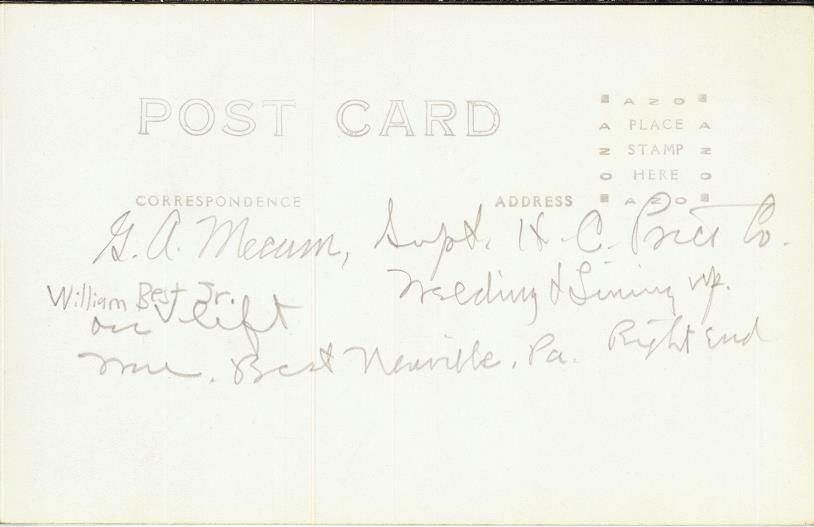 POST CARD
AZO
A PLACE A
Z STAMP Z
O HERE O
AZO
CORRESPONDENCE
ADDRESS
G. A. Mecum, Supt. H. C. Price Co.
William Best Jr. Welding & Lining up.
on left
Best Newville, Pa. Right End